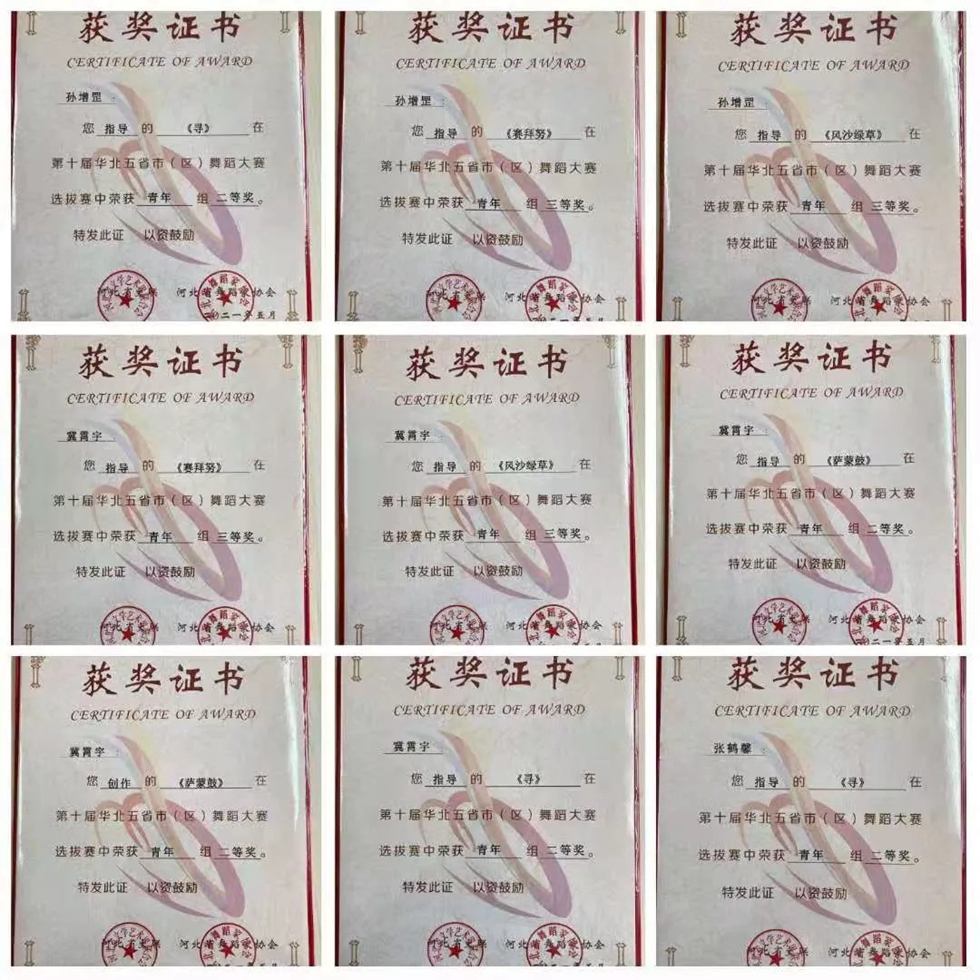 获奖证书
CERTIFICATE OF AWARD
孙增罡：
您 指导 的 《寻》 在
第十届华北五省市（区）舞蹈大赛
选拔赛中荣获 青年 组 二等奖。
特发此证 以资鼓励
河北省文联 河北省舞蹈家协会
二一年五月
获奖证书
CERTIFICATE OF AWARD
孙增罡：
您 指导 的 《赛拜努》 在
第十届华北五省市（区）舞蹈大赛
选拔赛中荣获 青年 组 三等奖。
特发此证 以资鼓励
河北省文联 河北省舞蹈家协会
二一年五月
获奖证书
CERTIFICATE OF AWARD
孙增罡：
您 指导 的 《风沙绿草》 在
第十届华北五省市（区）舞蹈大赛
选拔赛中荣获 青年 组 三等奖。
特发此证 以资鼓励
河北省文联 河北省舞蹈家协会
获奖证书
CERTIFICATE OF AWARD
冀霄宇：
您 指导 的 《赛拜努》 在
第十届华北五省市（区）舞蹈大赛
选拔赛中荣获 青年 组 三等奖。
特发此证 以资鼓励
河北省文联 河北省舞蹈家协会
获奖证书
CERTIFICATE OF AWARD
冀霄宇：
您 指导 的 《风沙绿草》 在
第十届华北五省市（区）舞蹈大赛
选拔赛中荣获 青年 组 三等奖。
特发此证 以资鼓励
河北省文联 河北省舞蹈家协会
获奖证书
CERTIFICATE OF AWARD
冀霄宇：
您 指导 的 《萨蒙鼓》 在
第十届华北五省市（区）舞蹈大赛
选拔赛中荣获 青年 组 二等奖。
特发此证 以资鼓励
河北省文联 河北省舞蹈家协会
二一年五月
获奖证书
CERTIFICATE OF AWARD
冀霄宇：
您 创作 的 《萨蒙鼓》 在
第十届华北五省市（区）舞蹈大赛
选拔赛中荣获 青年 组 二等奖。
特发此证 以资鼓励
河北省文联 河北省舞蹈家协会
获奖证书
CERTIFICATE OF AWARD
冀霄宇：
您 指导 的 《寻》 在
第十届华北五省市（区）舞蹈大赛
选拔赛中荣获 青年 组 二等奖。
特发此证 以资鼓励
河北省文联 河北省舞蹈家协会
获奖证书
CERTIFICATE OF AWARD
张鹤馨：
您 指导 的 《寻》 在
第十届华北五省市（区）舞蹈大赛
选拔赛中荣获 青年 组 二等奖。
特发此证 以资鼓励
河北省文联 河北省舞蹈家协会